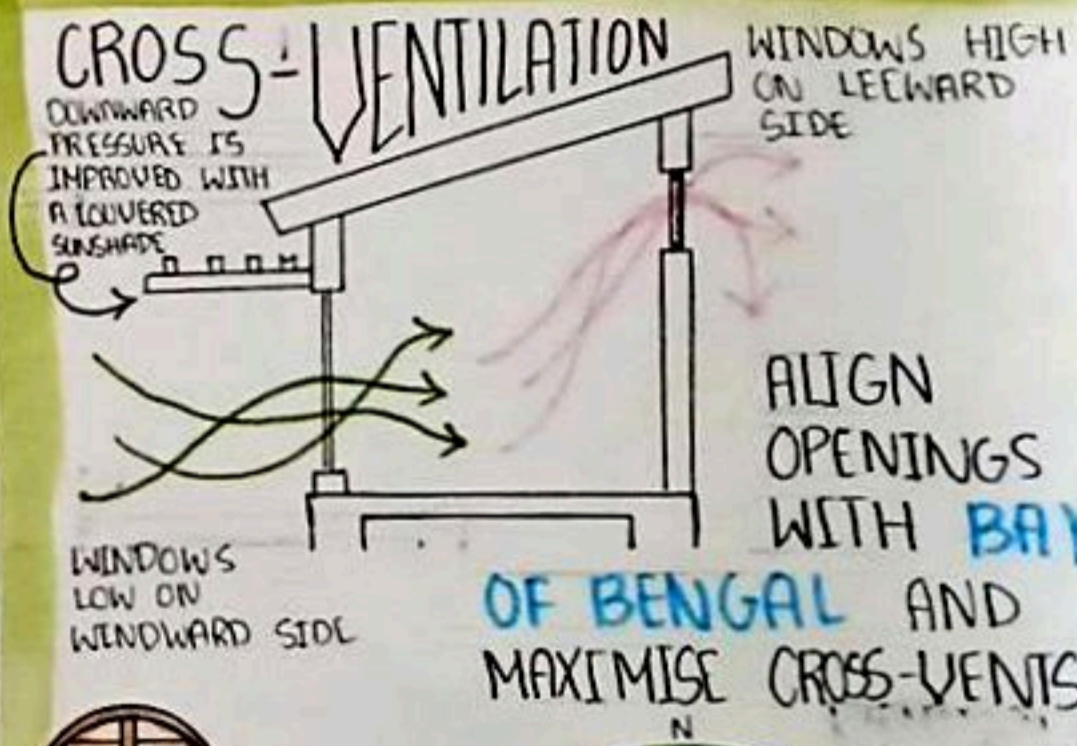 CROSS-VENTILATION
DOWNWARD
PRESSURE IS
IMPROVED WITH
A LOUVERED
SUNSHADE
WINDOWS HIGH
ON LEEWARD
SIDE
WINDOWS
LOW ON
WINDWARD SIDE
ALIGN
OPENINGS
WITH BAY
OF BENGAL AND
MAXIMISE CROSS-VENTS
N